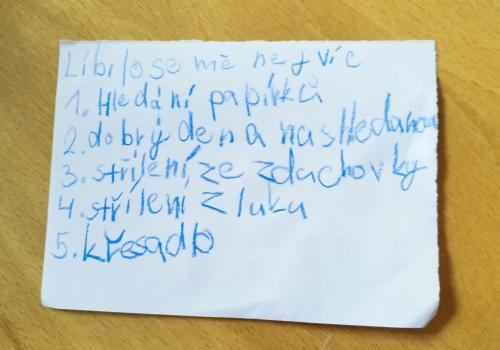 Líbilo se mě nejvíc
1. Hledání papírků
2. dobrý den a nashledanou
3. střílení ze zduchovky
4. střílení z luku
5. křesadlo